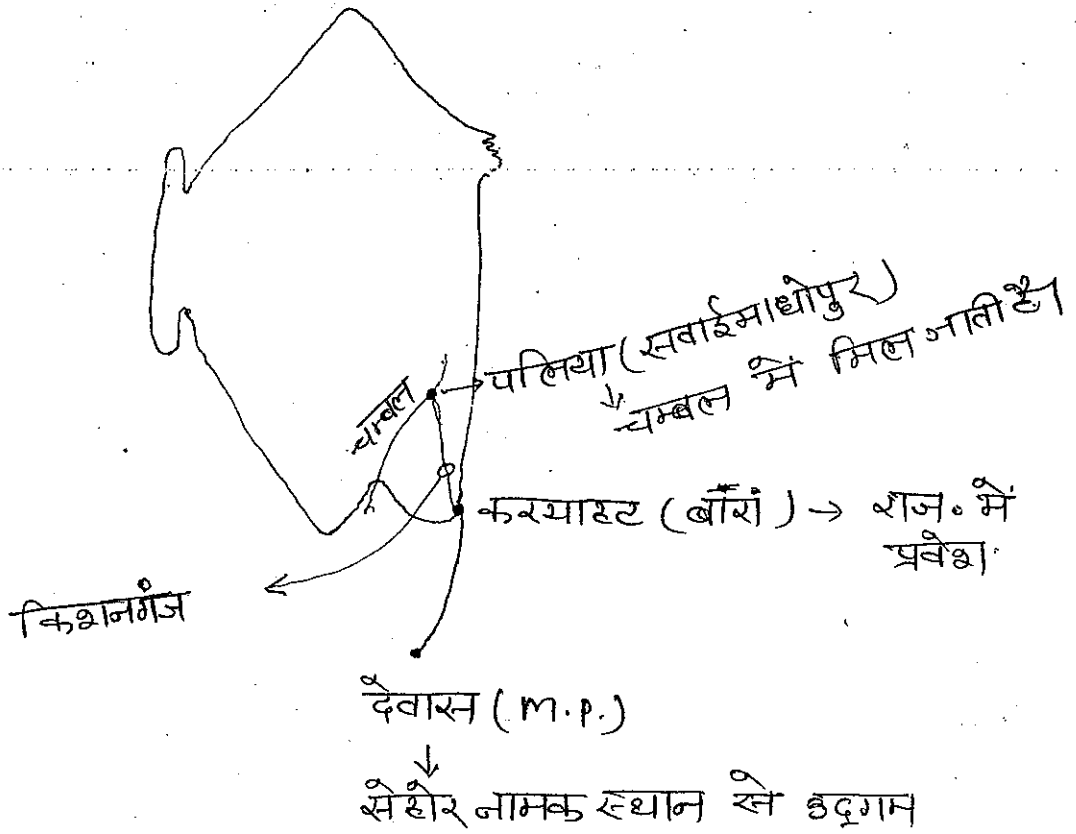 पलिया (सवाईमाधोपुर)
↓
चम्बल में मिल जाती है।
चम्बल
करयाहट (बाँरा) → राज. में
प्रवेश
किशनगंज
देवास (M.P.)
↓
सेहोर नामक स्थान से उद्गम